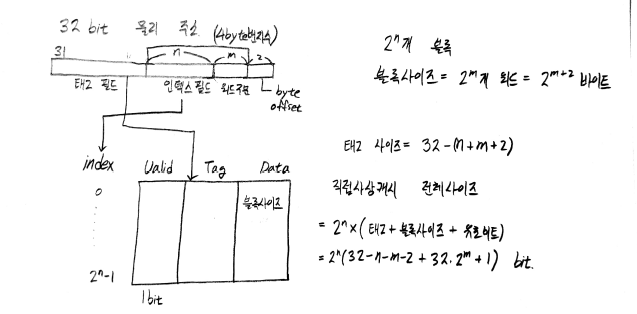 32 bit 물리 주소 (4byte번지수)
31
n
m
2
태그 필드
인덱스 필드
워드주판
byte
offset
index
Valid
Tag
Data
0
블록사이즈
2ⁿ-1
1bit
2ⁿ개 블록
블록사이즈 = 2ᵐ개 워드 = 2ᵐ⁺² 바이트
태그 사이즈 = 32-(n+m+2)
직접사상캐시 전체사이즈
= 2ⁿ×(태그+블록사이즈+유효비트)
= 2ⁿ(32-n-m-2+32·2ᵐ+1) bit.